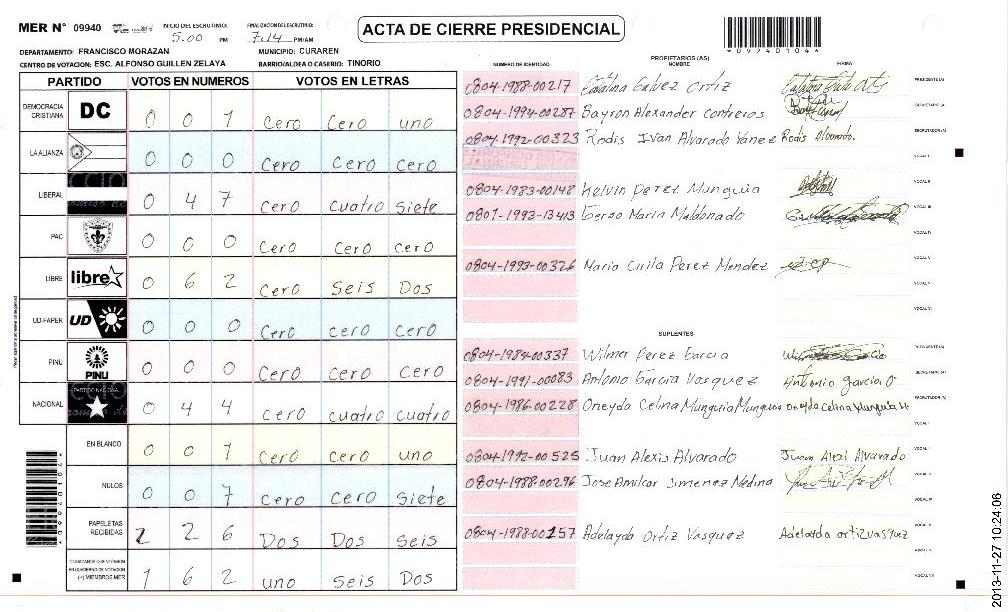 MER N° 09940 INICIO DEL ESCRUTINIO: 5:00 PM FINALIZACION DEL ESCRUTINIO: 7:14 PM/AM
ACTA DE CIERRE PRESIDENCIAL
*09940104*
DEPARTAMENTO: FRANCISCO MORAZAN MUNICIPIO: CURAREN
CENTRO DE VOTACION: ESC. ALFONSO GUILLEN ZELAYA BARRIO/ALDEA O CASERIO: TINORIO
PARTIDO VOTOS EN NUMEROS VOTOS EN LETRAS
DEMOCRACIA CRISTIANA DC 0 0 1 Cero Cero uno
LA ALIANZA 0 0 0 Cero Cero Cero
LIBERAL 0 4 7 Cero Cuatro Siete
PAC 0 0 0 Cero Cero Cero
LIBRE libre 0 6 2 Cero Seis Dos
UD-FAPER UD 0 0 0 Cero cero Cero
PINU PINU 0 0 0 Cero Cero Cero
NACIONAL 0 4 4 Cero cuatro Cuatro
EN BLANCO 0 0 1 Cero Cero uno
NULOS 0 0 7 Cero Cero Siete
PAPELETAS RECIBIDAS 2 2 6 Dos Dos Seis
CIUDADANOS QUE VOTARON EN CUADERNO DE VOTACION (+) MIEMBROS MER 1 6 2 uno Seis Dos
PROPIETARIOS (AS)
NUMERO DE IDENTIDAD NOMBRE FIRMA
0804-1988-00217 Catalina Galvez Ortiz PRESIDENTE(A)
0804-1994-00287 Bayron Alexander Contreros SECRETARIO(A)
0804-1992-00323 Rodis Ivan Alvarado Yanez Rodis Alvarado. ESCRUTADOR(A)
VOCAL I
0804-1983-00148 Kelvin Perez Munguia VOCAL II
0801-1993-13413 Gerso Maria Maldonado VOCAL III
VOCAL IV
0804-1993-00326 Maria Cuila Perez Mendez VOCAL V
VOCAL VI
SUPLENTES
0804-1984-00337 Wilmer Perez Garcia PRESIDENTE(A)
0804-1991-00083 Antonio Garcia Vasquez Antonio garcia O SECRETARIO(A)
0804-1986-00228 Oneyda Celina Munguia Munguia Oneyda Celina Munguia M. ESCRUTADOR(A)
VOCAL I
0804-1992-00525 Juan Alexis Alvarado Juan Alexi Alvarado VOCAL II
0804-1988-00296 Jose Amilcar Jimenez Medina VOCAL III
VOCAL IV
0804-1988-00157 Adelayda Ortiz Vasquez Adelayda ortiz vasquez VOCAL V
VOCAL VI
VOCAL VII
2013-11-27 10:24:06